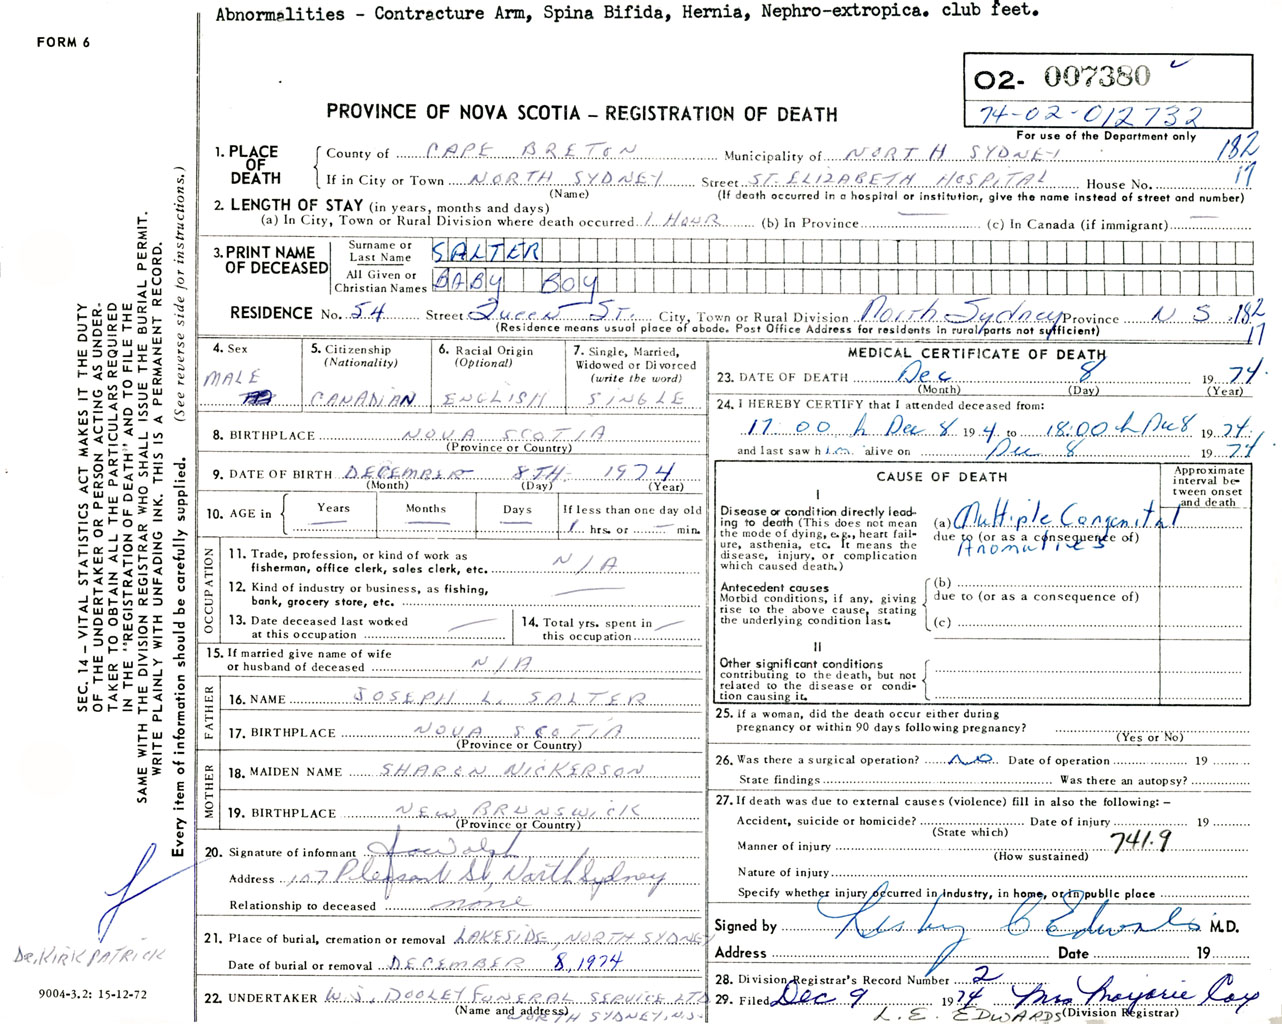 Abnormalities - Contracture Arm, Spina Bifida, Hernia, Nephro-extropica. club feet.
FORM 6
O2- 007380
74-02-012732
For use of the Department only
PROVINCE OF NOVA SCOTIA – REGISTRATION OF DEATH
1. PLACE OF DEATH
County of CAPE BRETON Municipality of NORTH SYDNEY 182
If in City or Town NORTH SYDNEY Street ST. ELIZABETH HOSPITAL House No. 17
(Name) (If death occurred in a hospital or institution, give the name instead of street and number)
2. LENGTH OF STAY (in years, months and days)
(a) In City, Town or Rural Division where death occurred 1 HOUR (b) In Province (c) In Canada (if immigrant)
3. PRINT NAME OF DECEASED
Surname or Last Name SALTER
All Given or Christian Names BABY BOY
RESIDENCE No. 54 Street Queen St. City, Town or Rural Division North Sydney Province N S 182
(Residence means usual place of abode. Post Office Address for residents in rural parts not sufficient) 17
4. Sex
MALE
5. Citizenship
(Nationality)
CANADIAN
6. Racial Origin
(Optional)
ENGLISH
7. Single, Married,
Widowed or Divorced
(write the word)
SINGLE
8. BIRTHPLACE NOVA SCOTIA
(Province or Country)
9. DATE OF BIRTH DECEMBER 8TH 1974
(Month) (Day) (Year)
10. AGE in
Years Months Days If less than one day old
1 hrs. or — min.
OCCUPATION
11. Trade, profession, or kind of work as
fisherman, office clerk, sales clerk, etc. N/A
12. Kind of industry or business, as fishing,
bank, grocery store, etc.
13. Date deceased last worked
at this occupation
14. Total yrs. spent in
this occupation
15. If married give name of wife
or husband of deceased N/A
FATHER
16. NAME JOSEPH L. SALTER
17. BIRTHPLACE NOVA SCOTIA
(Province or Country)
MOTHER
18. MAIDEN NAME SHARON NICKERSON
19. BIRTHPLACE NEW BRUNSWICK
(Province or Country)
20. Signature of informant
Address 107 Pleasant St, North Sydney
Relationship to deceased none
21. Place of burial, cremation or removal LAKESIDE, NORTH SYDNEY
Date of burial or removal DECEMBER 8, 1974
22. UNDERTAKER W. J. DOOLEY FUNERAL SERVICE LTD
(Name and address) NORTH SYDNEY, N.S.
MEDICAL CERTIFICATE OF DEATH
23. DATE OF DEATH Dec 8 19 74
(Month) (Day) (Year)
24. I HEREBY CERTIFY that I attended deceased from:
17 00 h Dec 8 19 74 to 18:00 h Dec 8 19 74
and last saw h im alive on Dec 8 19 74
CAUSE OF DEATH
Approximate interval between onset and death
I
Disease or condition directly lead-
ing to death (This does not mean
the mode of dying, e.g., heart fail-
ure, asthenia, etc. It means the
disease, injury, or complication
which caused death.)
(a) Multiple Congenital
due to (or as a consequence of)
Anomalies
Antecedent causes
Morbid conditions, if any, giving
rise to the above cause, stating
the underlying condition last.
(b)
due to (or as a consequence of)
(c)
II
Other significant conditions
contributing to the death, but not
related to the disease or condi-
tion causing it.
25. If a woman, did the death occur either during
pregnancy or within 90 days following pregnancy?
(Yes or No)
26. Was there a surgical operation? No Date of operation 19
State findings Was there an autopsy?
27. If death was due to external causes (violence) fill in also the following: –
Accident, suicide or homicide? Date of injury 19
(State which) 741.9
Manner of injury
(How sustained)
Nature of injury
Specify whether injury occurred in industry, in home, or in public place
Signed by Lesley C Edwards M.D.
Address Date 19
28. Division Registrar's Record Number 2
29. Filed Dec 9 1974 Mrs Marjorie Cox
L. E. EDWARDS (Division Registrar)
SEC. 14 – VITAL STATISTICS ACT MAKES IT THE DUTY
OF THE UNDERTAKER OR PERSON ACTING AS UNDER-
TAKER TO OBTAIN ALL THE PARTICULARS REQUIRED
IN THE "REGISTRATION OF DEATH" AND TO FILE THE
SAME WITH THE DIVISION REGISTRAR WHO SHALL ISSUE THE BURIAL PERMIT.
WRITE PLAINLY WITH UNFADING INK. THIS IS A PERMANENT RECORD.
Every item of information should be carefully supplied. (See reverse side for instructions.)
Dr. KIRKPATRICK
9004-3.2: 15-12-72